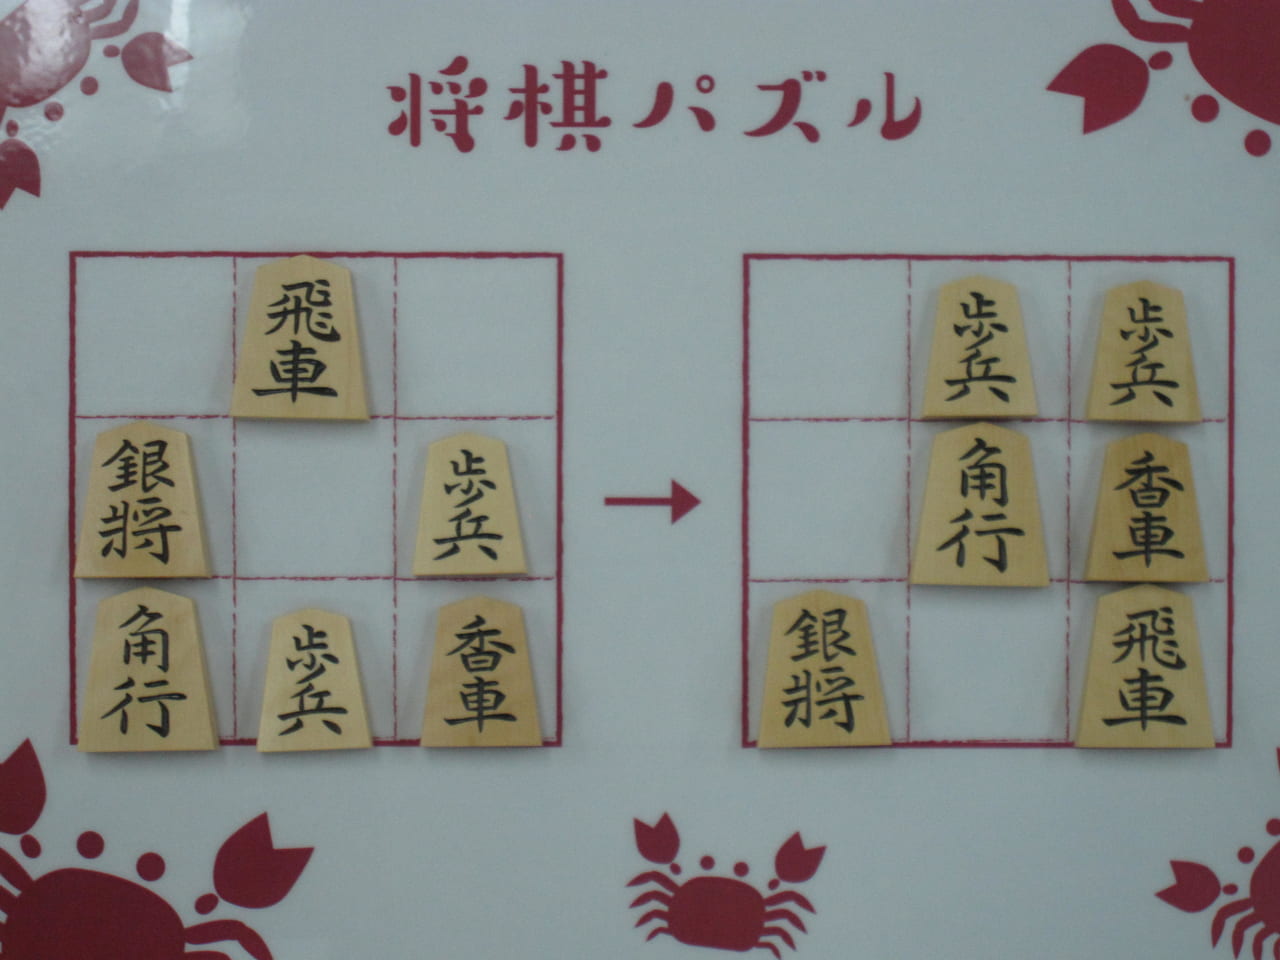 将棋パズル
飛車
銀将
歩兵
角行
歩兵
香車
歩兵
歩兵
角行
香車
銀将
飛車